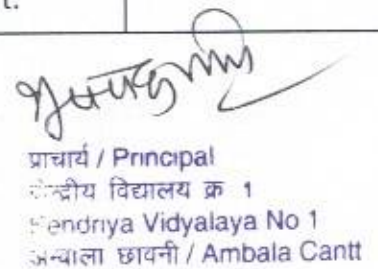 t.
प्राचार्य / Principal
केन्द्रीय विद्यालय क्र 1
Kendriya Vidyalaya No 1
अम्बाला छावनी / Ambala Cantt